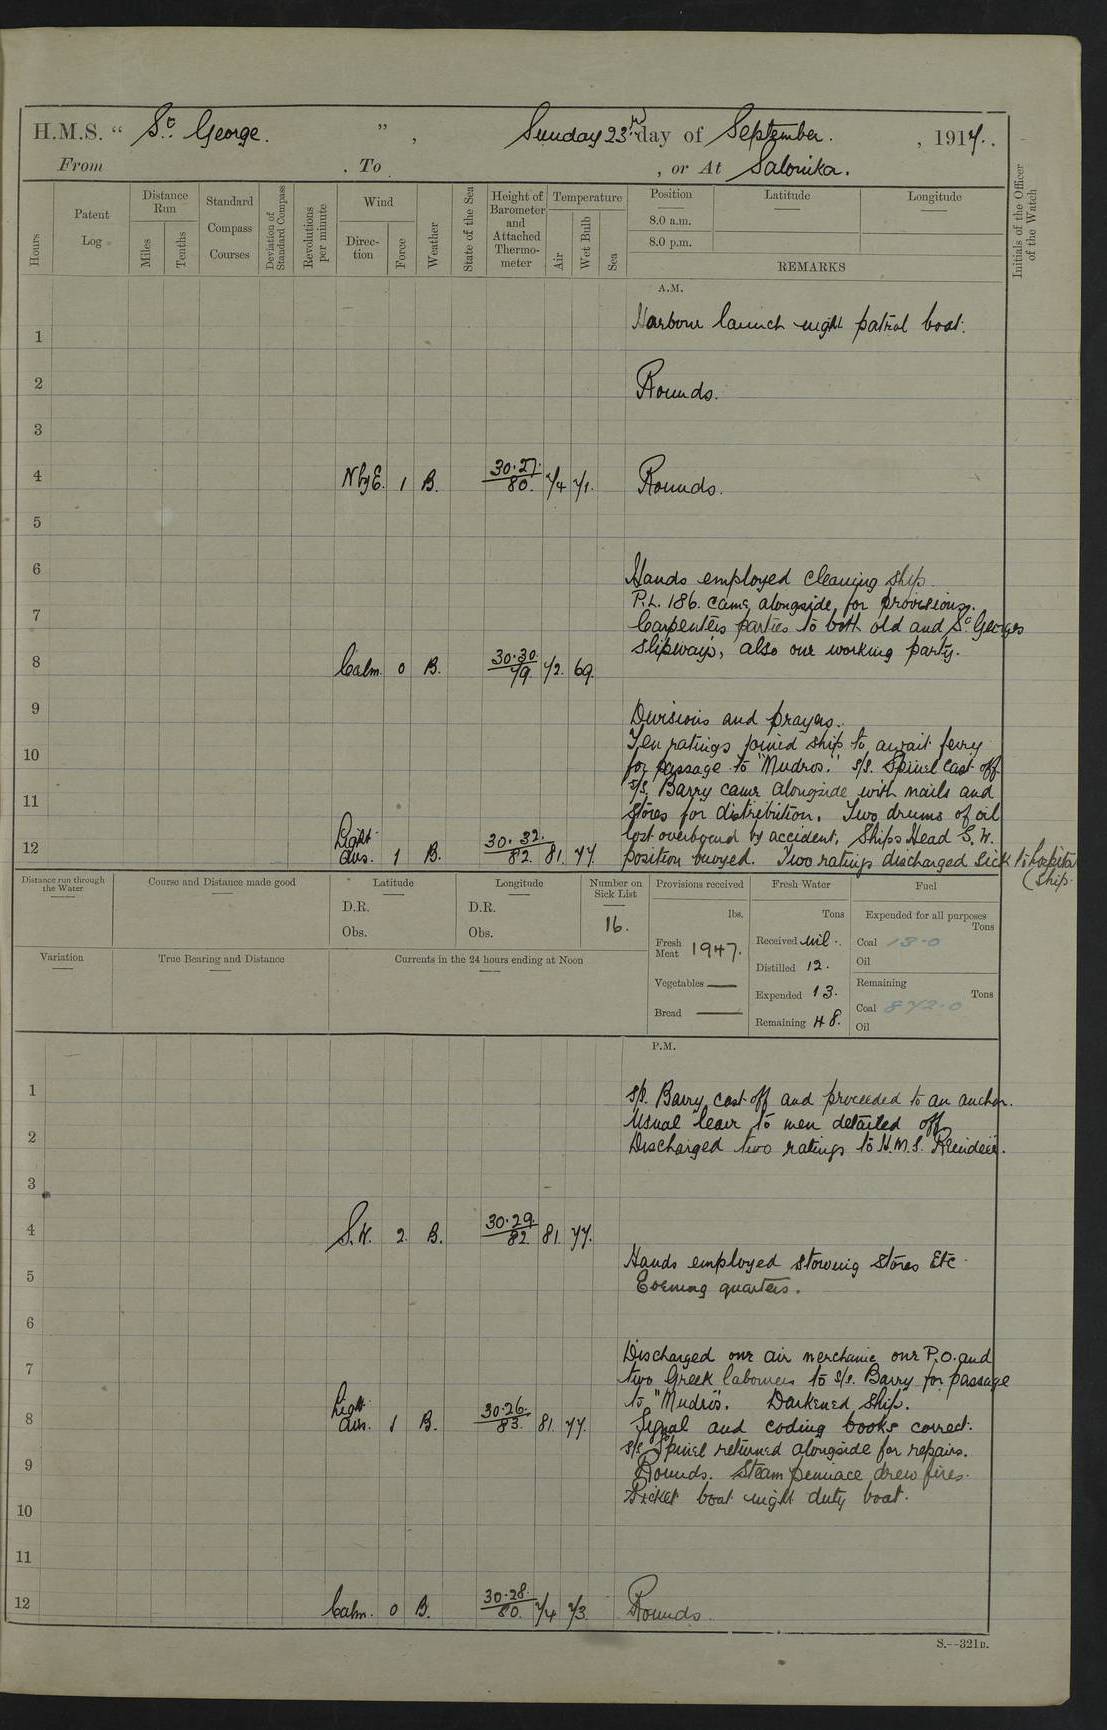 H.M.S. “ St. George. ” , Sunday 23rd day of September. , 1917.
From . To , or At Salonika.
Hours
Patent Log
Distance Run
Miles
Tenths
Standard Compass Courses
Deviation of Standard Compass
Revolutions per minute
Wind
Direction
Force
Weather
State of the Sea
Height of Barometer and Attached Thermometer
Temperature
Air
Wet Bulb
Sea
Position
Latitude
Longitude
8.0 a.m.
8.0 p.m.
REMARKS
Initials of the Officer of the Watch
A.M.
1 Harbour launch night patrol boat.
2 Rounds.
3
4 N by E. 1 B. 30.27. 80. 74 71. Rounds.
5
6 Hands employed cleaning ship.
P.L. 186. came alongside, for provisions.
7 Carpenters parties to both old and St Georges
slipways, also our working party.
8 Calm. 0 B. 30.30. 79 72. 69.
9 Divisions and prayers.
Ten ratings joined ship to await ferry
10 for passage to "Mudros." s/s. Spinel cast off
s/s. Barry came alongside with mails and
11 stores for distribution. Two drums of oil
lost overboard by accident. Ships Head S.W.
12 Light airs. 1 B. 30.32. 82. 81. 77. position buoyed. Two ratings discharged sick to hospital
(ship.
Distance run through the Water
Course and Distance made good
Latitude
D.R.
Obs.
Longitude
D.R.
Obs.
Number on Sick List
16.
Provisions received
lbs.
Fresh Meat 1947.
Vegetables —
Bread —
Fresh Water
Tons
Received nil.
Distilled 12.
Expended 13.
Remaining 48.
Fuel
Expended for all purposes
Tons
Coal 13.0
Oil
Remaining
Tons
Coal 872.0
Oil
Variation
True Bearing and Distance
Currents in the 24 hours ending at Noon
P.M.
1 s/s. Barry cast off and proceeded to an anchor.
Usual leave to men detailed off
2 Discharged two ratings to H.M.S. Reindeer.
3
4 S.W. 2. B. 30.29. 82. 81. 77.
Hands employed stowing stores Etc.
5 Evening quarters.
6
7 Discharged one air merchanic one P.O. and
two Greek labourers to s/s. Barry for passage
to "Mudros". Darkened ship.
8 Light airs. 1 B. 30.26. 83. 81. 77. Signal and coding books correct.
s/s Spinel returned alongside for repairs.
9 Rounds. Steam pinnace drew fires.
Picket boat night duty boat.
10
11
12 Calm. 0 B. 30.28. 80. 74 73. Rounds.
S.—321D.